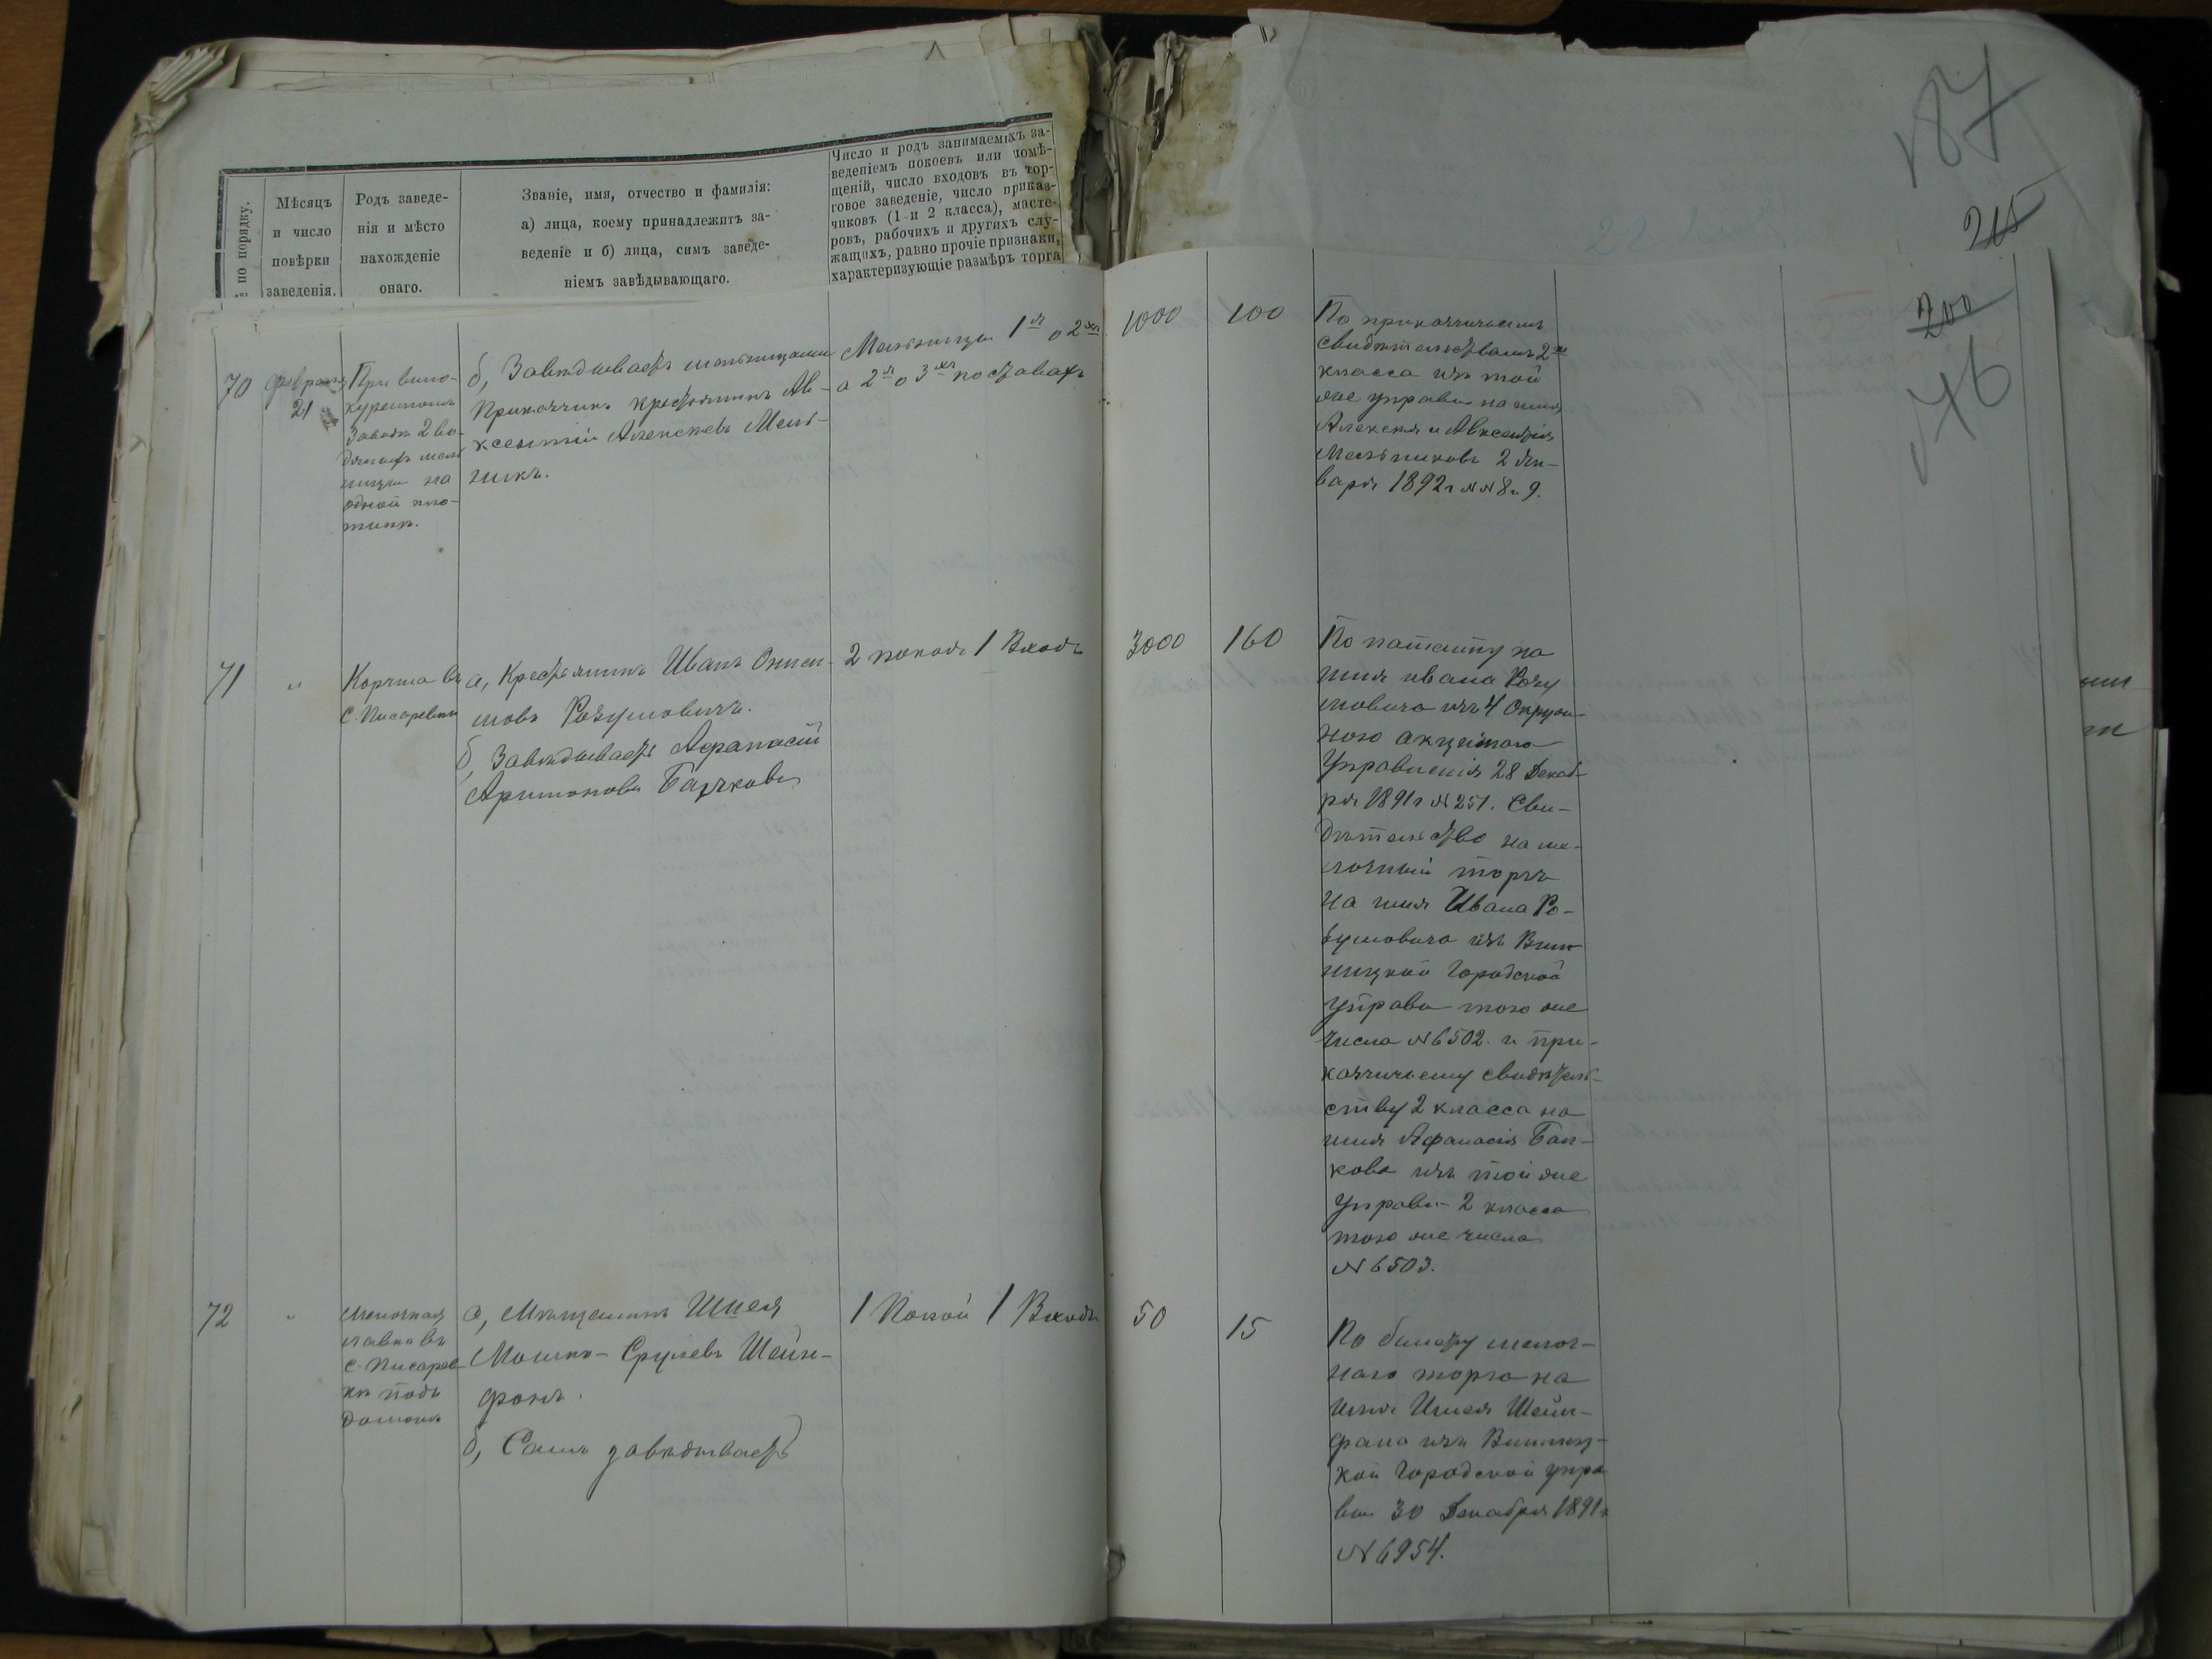 187
215
200
176
№ по порядку.
Мѣсяцъ
и число
повѣрки
заведенія.
Родъ заведе-
нія и мѣсто
нахожденіе
онаго.
Званіе, имя, отчество и фамилія:
а) лица, коему принадлежитъ за-
веденіе и б) лица, симъ заведе-
ніемъ завѣдывающаго.
Число и родъ занимаемыхъ за-
веденіемъ покоевъ или помѣ-
щеній, число входовъ въ тор-
говое заведеніе, число приказ-
чиковъ (1 и 2 класса), масте-
ровъ, рабочихъ и другихъ слу-
жащихъ, равно прочіе признаки,
характеризующіе размѣръ торга
70
Февраля
21
При вино-
куренномъ
Заводѣ 2 во-
дяныхъ мель
ницы на
одной пло-
тинѣ.
б, Завѣдываетъ мельницами
Приказчикъ крестьянинъ Ав-
ксентій Алексѣевъ Мель-
никъ.
Мельницы 1я о 2хъ
а 2я о 3хъ поставахъ
1000
100
По приказчичьимъ
свидѣтельствамъ 2го
класса изъ той
же управы на имя
Алексѣя и Авксентія
Мельниковъ 2 Ян-
варя 1892 г NN 8 и 9.
71
"
Корчма въ
С. Писаревкѣ
а, Крестьянинъ Иванъ Ониси-
мовъ Розумовичъ.
б, Завѣдываетъ Афанасій
Аримоновъ
2 покоя 1 Входъ
3000
160
По патенту на
имя Ивана Розу
мовича изъ 4 Окруж-
ного акцизнаго
Управленія 28 Декаб-
ря 1891 г N 251. Сви-
дѣтельство на ме-
лочный торгъ
на имя Ивана Ро-
зумовича изъ Вин
ницкой Городской
Управы того же
числа N 6502. и при-
казчичьему свидѣтель-
ству 2 класса на
имя Афанасія
изъ той же
Управы 2 класса
того же числа
N 6503.
72
"
Мелочная
лавка въ
С. Писарев-
кѣ подъ
домомъ
а, Мѣщанинъ Шмея
Мошко-Срулевъ Шейн-
фанъ.
б, Самъ завѣдываетъ
1 Покой 1 Входъ
50
15
По билету мелоч-
наго торга на
имя Шмея Шейн-
фана изъ Винниц-
кой Городской упра
вы 30 Декабря 1891 г
N 6954.